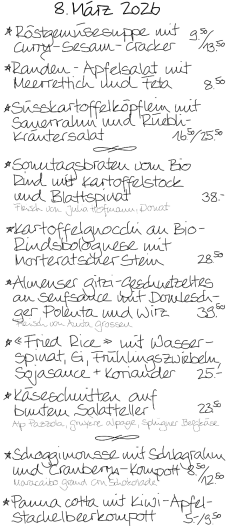 8. März 2026
* Röstgemüsesuppe mit 9.50/
Curry-Sesam-Cracker 13.50
* Randen-Apfelsalat mit
Meerrettich und Feta 8.50
* Süsskartoffelköpflein mit
Sauerrahm und Rüebli-
Kräutersalat 16.50/25.50
* Sonntagsbraten vom Bio
Rind mit Kartoffelstock
und Blattspinat 38.-
Fleisch von Julia Hofmann, Donat
* Kartoffelgnocchi an Bio-
Rindsbolognese mit
Morteratscher Stein 28.50
* Almenser Gitzi-Geschnetzeltes
an Senfsauce mit Domlesch-
ger Polenta und Wirz 38.50
Fleisch von
* «Fried Rice» mit Wasser-
spinat, Ei, Frühlingszwiebeln,
Sojasauce + Koriander 25.-
* Käseschnitten auf
buntem Salatteller 23.50
Alp Gruyère Alpage, Splügner Bergkäse
* Schoggimousse mit Schlagrahm
und Cranberry-Kompott 8.50/
12.50
Maracaibo Grand Cru Schokolade
* Panna cotta mit Kiwi-Apfel-
Stachelbeerkompott 5.-/9.50